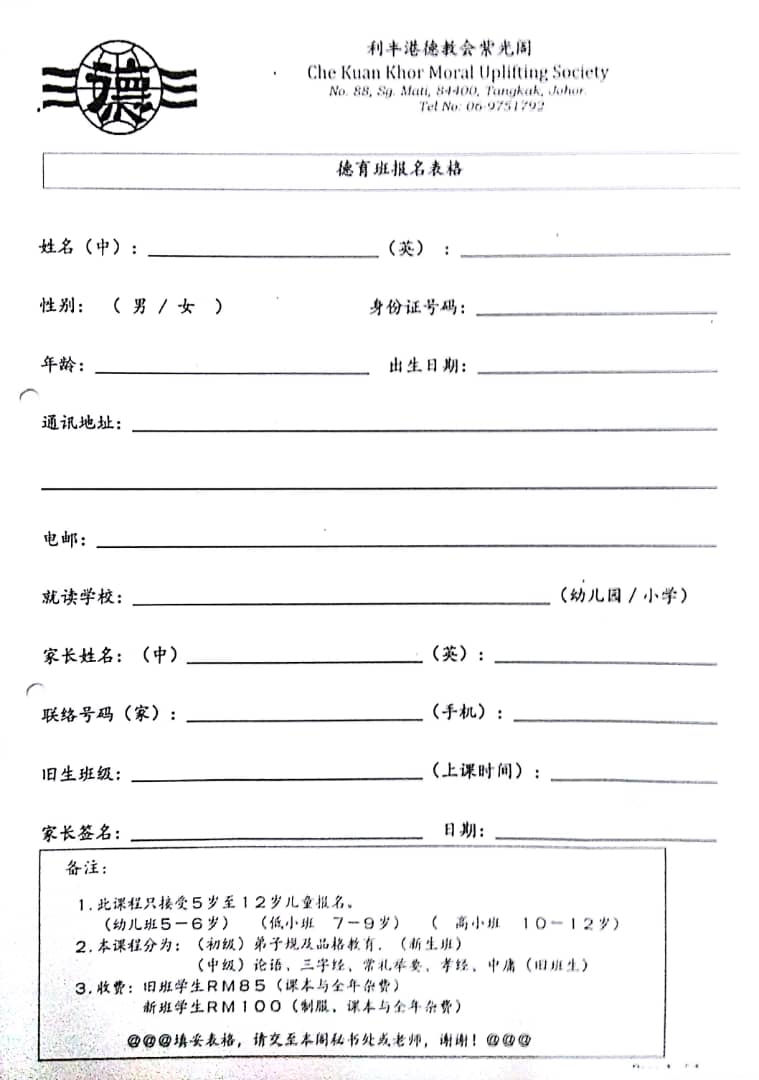 德
利丰港德教会紫光阁
Che Kuan Khor Moral Uplifting Society
No. 88, Sg. Mati, 84400, Tangkak, Johor.
Tel No: 06-9751792
德育班报名表格
姓名（中）：（英）：
性别：（ 男 / 女 ） 身份证号码：
年龄： 出生日期：
通讯地址：
电邮：
就读学校：（幼儿园 / 小学）
家长姓名：（中）（英）：
联络号码（家）：（手机）：
旧生班级：（上课时间）：
家长签名： 日期：
备注：
1. 此课程只接受5岁至12岁儿童报名。
（幼儿班5-6岁） （低小班 7-9岁） （ 高小班 10-12岁）
2. 本课程分为：（初级）弟子规及品格教育.（新生班）
（中级）论语、三字经、常礼举要、孝经、中庸（旧班生）
3. 收费：旧班学生RM85（课本与全年杂费）
新班学生RM100（制服、课本与全年杂费）
@@@填妥表格，请交至本阁秘书处或老师，谢谢！@@@